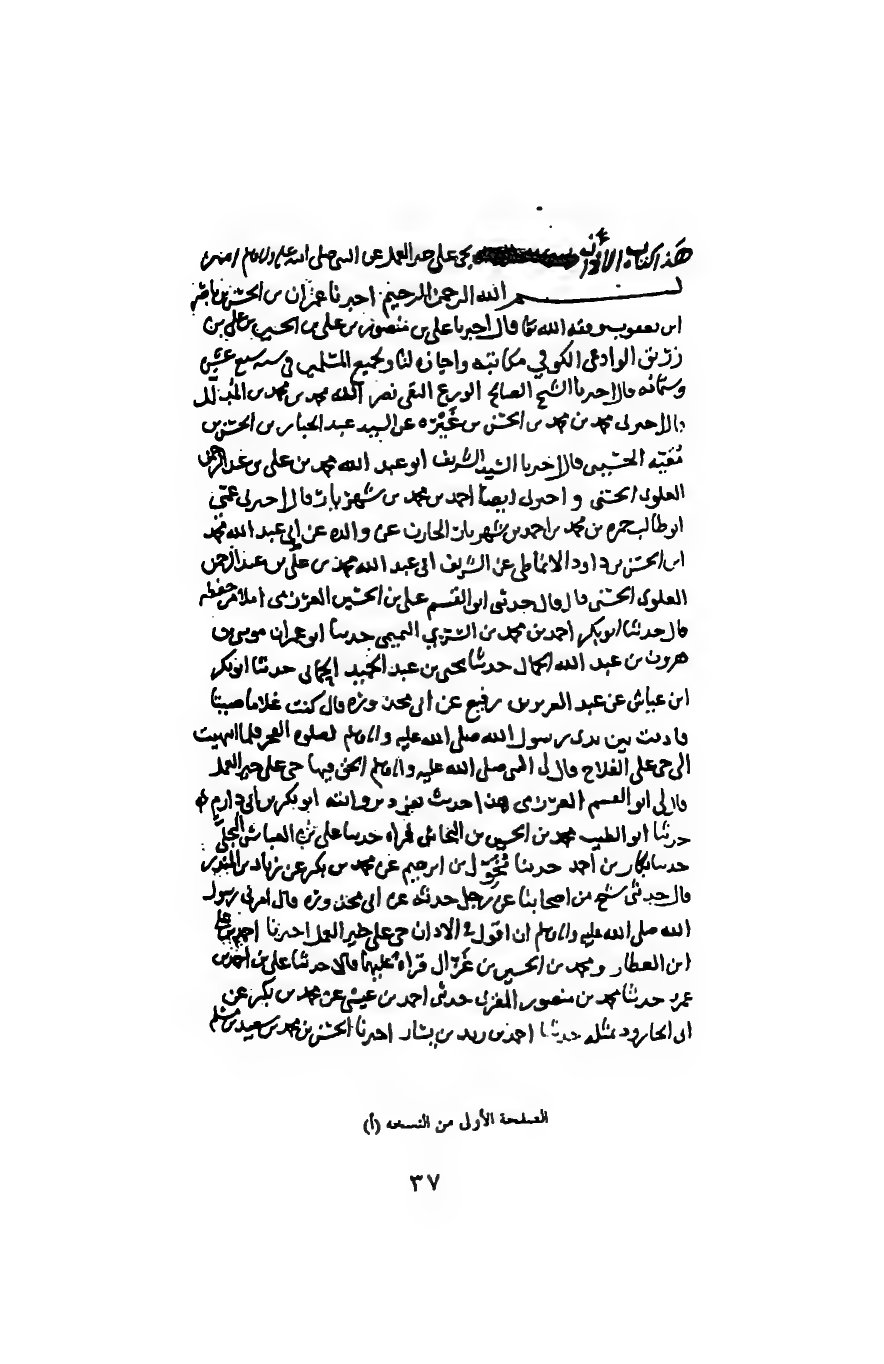 هذا كتاب الأذان بحي على خير العمل عن النبي صلى الله عليه واله وسلم
بسم الله الرحمن الرحيم اخبرنا عمران بن الحسن بن ناصر
ابن يعقوب وفقه الله تعالى قال اخبرنا علي بن منصور بن علي بن الحسين بن علي بن
رزين الوادعي الكوفي مكاتبة واجازه لنا ولجميع المسلمين في سنه سبع عشر
وستمائه قال اخبرنا الشيخ الصالح الورع التقي نصر الله محمد بن محمد بن المدلل
قال اخبرني محمد بن محمد بن الحسن بن غبره عن السيد عبد الجبار بن الحسن بن
معيه الحسيني قال اخبرنا السيد الشريف ابو عبد الله محمد بن علي بن عبد الرحمن
العلوي الحسني واخبرني ايضا احمد بن محمد بن شهريار قال اخبرني عمي
ابو طالب حمزه بن محمد بن احمد بن شهريار الخازن عن والده عن ابي عبد الله محمد
ابن الحسن بن داود الانماطي عن الشريف ابي عبد الله محمد بن علي بن عبد الرحمن
العلوي الحسني قال قال حدثني ابو القسم علي بن الحسين العرزمي املا من حفظه
قال حدثنا ابو بكر احمد بن محمد بن السري التميمي حدثنا ابو عمران موسى بن
هرون بن عبد الله الجمال حدثنا يحيى بن عبد الحميد الحماني حدثنا ابو بكر
ابن عياش عن عبد العزيز بن رفيع عن ابي محذوره قال كنت غلاما صبيا
فاذنت بين يدي رسول الله صلى الله عليه واله وسلم لصلوه الفجر فلما انتهيت
الى حي على الفلاح قال لي النبي صلى الله عليه واله وسلم الحق فيها حي على خير العمل
قال لي ابو القسم العرزمي هذا حديث تفرد بروايته ابو بكر بن ابي دارم
حدثنا ابو الطيب محمد بن الحسين بن النخاس قراه حدثنا علي بن العباس البجلي
حدثنا بكار بن احمد حدثنا مخول بن ابرهيم عن محمد بن بكر عن زياد بن المنذر
قال حدثني شيخ من اصحابنا عن رجل حدثه عن ابي محذوره قال امرني رسول
الله صلى الله عليه واله وسلم ان اقول في الاذان حي على خير العمل اخبرنا احمد بن علي
ابن العطار ومحمد بن الحسين بن غزال قراه عليهما قالا حدثنا علي بن احمد بن
عمرو حدثنا محمد بن منصور المقري حدثني احمد بن عيسى عن محمد بن بكر عن
ابي الجارود بمثله حدثنا احمد بن زيد بن بشار اخبرنا الحسن بن محمد بن سعيد بن مسلم
الصفحة الأولى من النسخه (أ)
٣٧